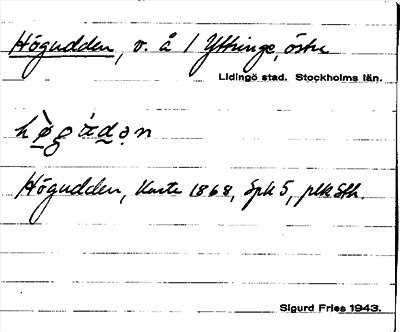 Högudden, v. å 1 Yttringe, östra
Lidingö stad. Stockholms län.
Högudden, Karta 1868, Spk 5, plk Sth.
Sigurd Fries 1943.